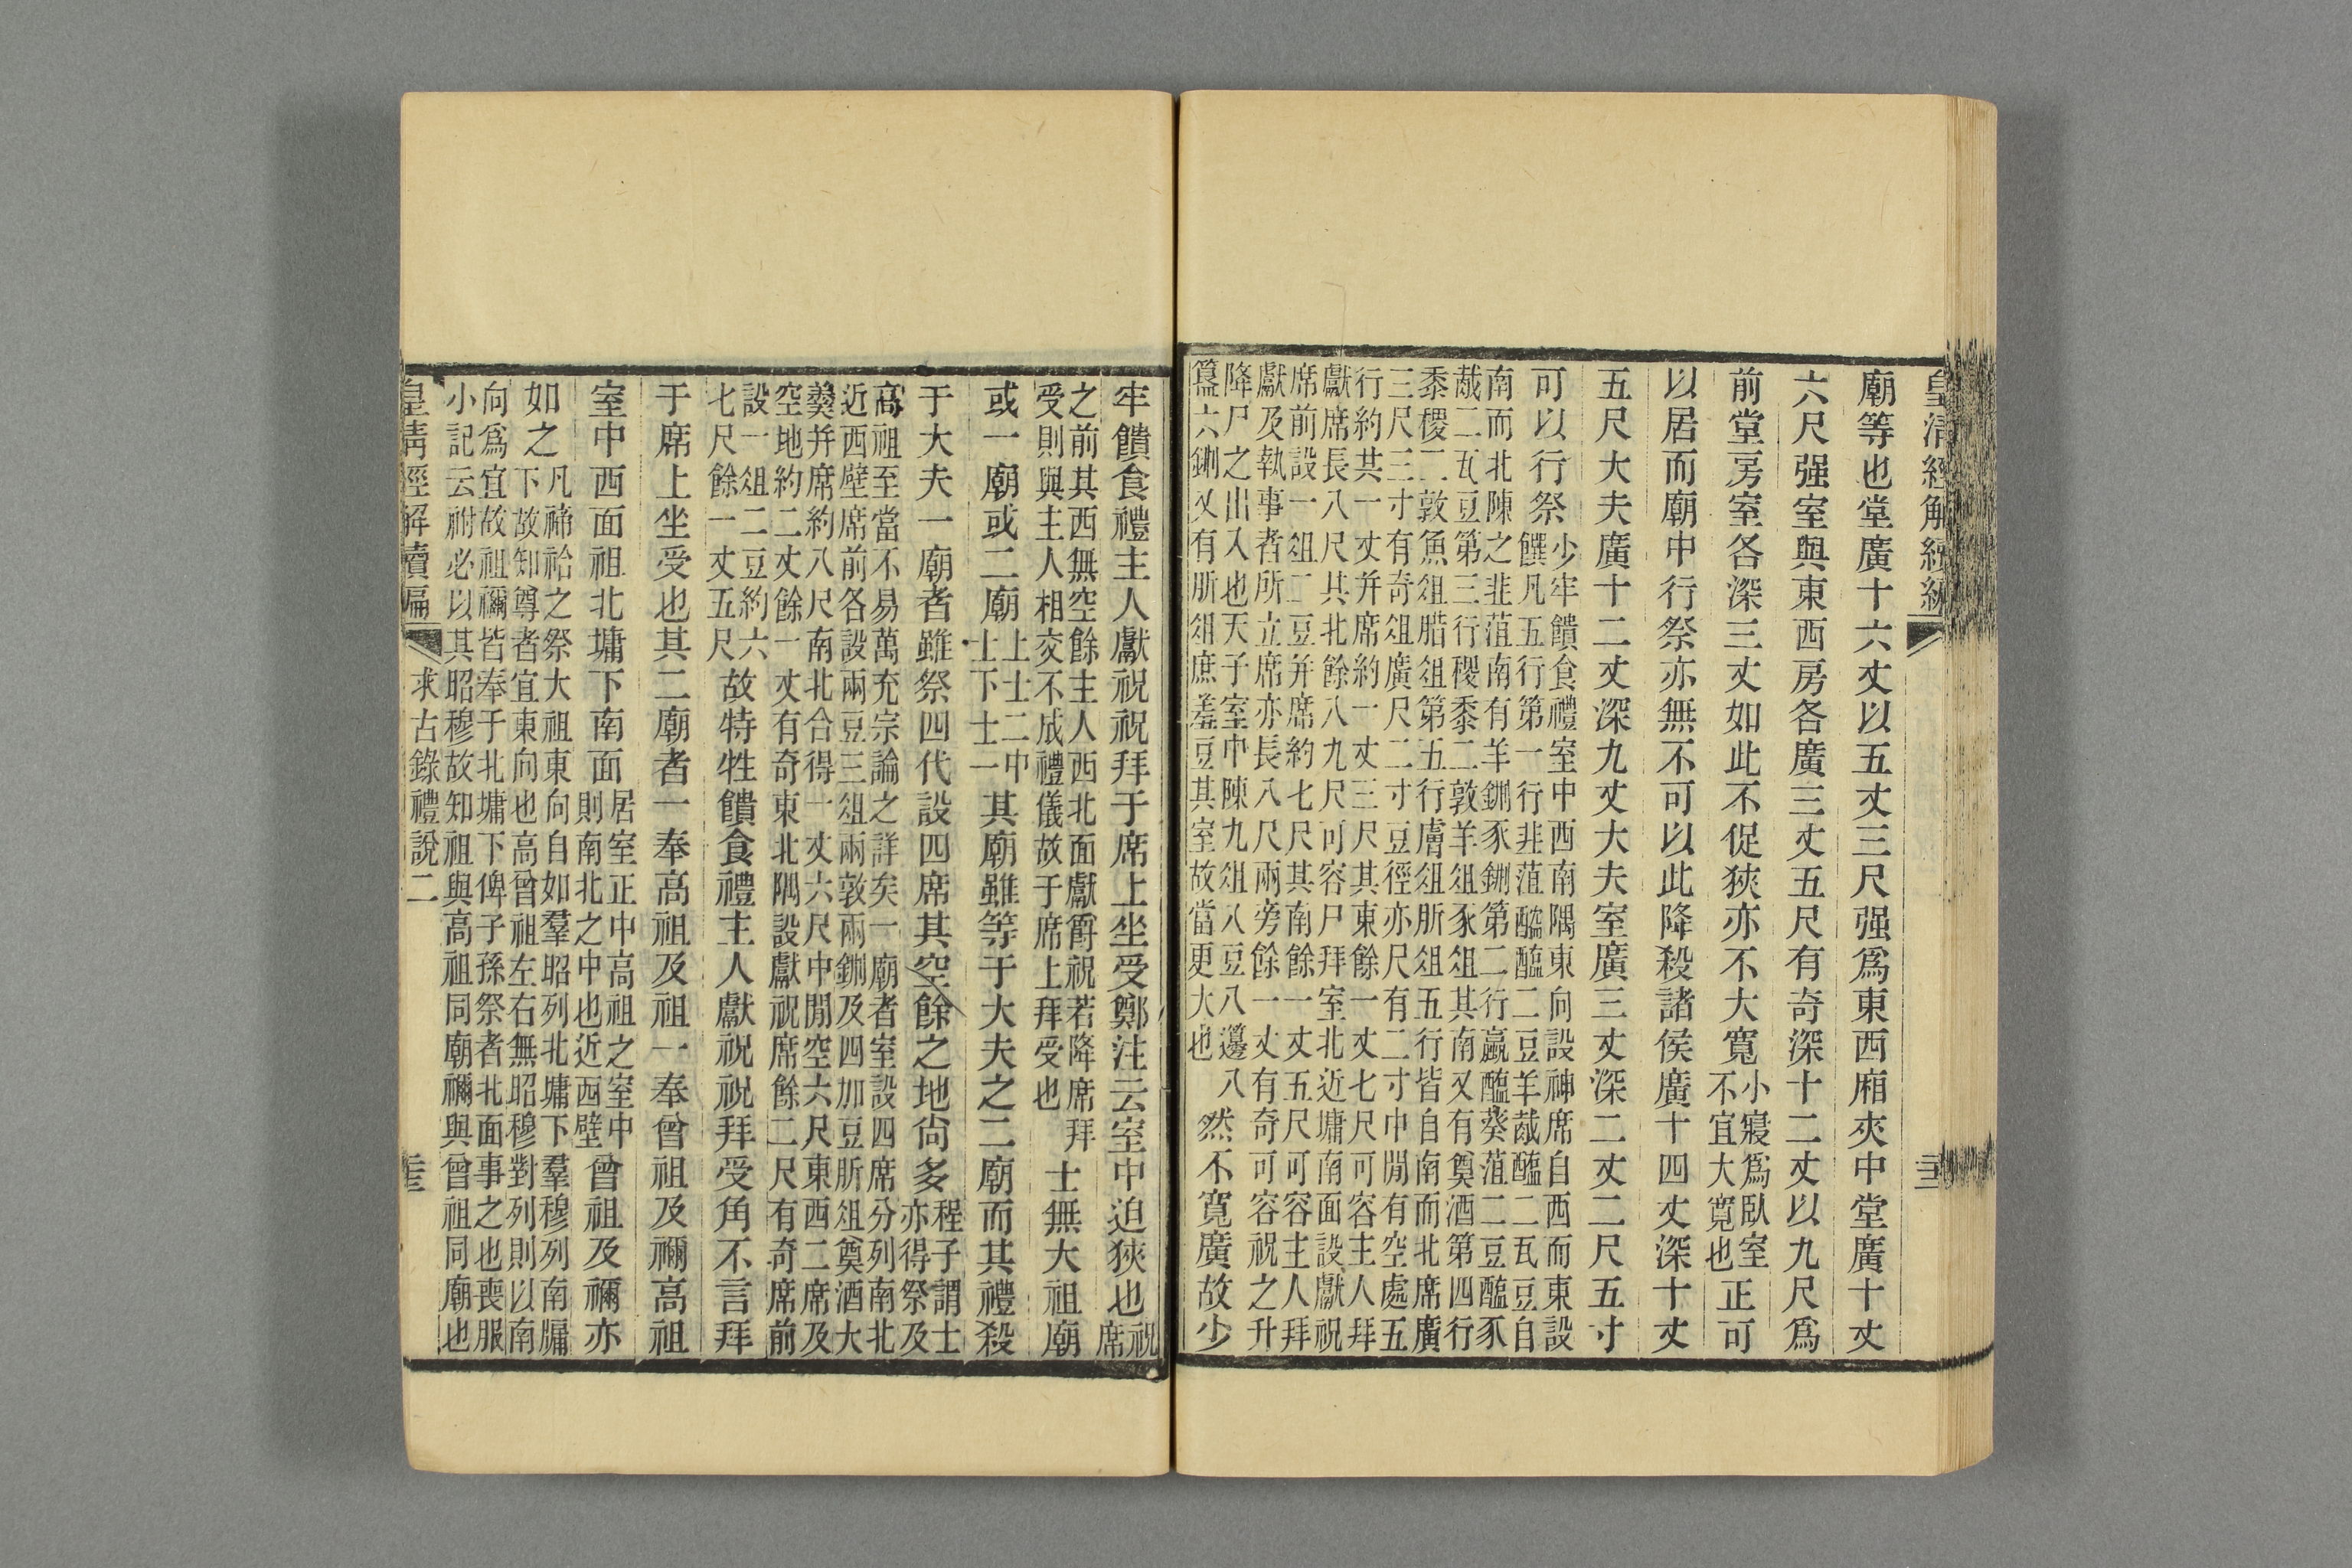 皇清經解續編
廟等也堂廣十六丈以五丈三尺强爲東西廂夾中堂廣十丈
六尺强室與東西房各廣三丈五尺有奇深十二丈以九尺爲
前堂房室各深三丈如此不促狹亦不大寬小寢爲臥室不宜大寬也正可
以居而廟中行祭亦無不可以此降殺諸侯廣十四丈深十丈
五尺大夫廣十二丈深九丈大夫室廣三丈深二丈二尺五寸
可以行祭少牢饋食禮室中西南隅東向設神席自西而東設
饌凡五行第一行韭菹醓醢二豆羊胾醢二瓦豆自
南而北陳之韭菹南有羊鉶豕鉶第二行蠃醢葵菹二豆醢豕
胾二瓦豆第三行稷黍二敦羊俎豕俎其南又有奠酒第四行
黍稷二敦魚俎腊俎第五行膚俎肵俎五行皆自南而北席廣
三尺三寸有奇俎廣尺二寸豆徑亦尺有二寸中閒有空處五
行約其一丈幷席約一丈三尺其東餘一丈七尺可容主人拜
獻席長八尺其北餘八九尺可容尸拜室北近墉南面設獻祝
席前設一俎二豆幷席約七尺其南餘一丈五尺可容主人拜
獻及執事者所立席亦長八尺兩旁餘一丈有奇可容祝之升
降尸之出入也天子室中陳九俎八豆八籩八
簋六鉶又有肵俎庶羞豆其室故當更大也然不寬廣故少
牢饋食禮主人獻祝祝拜于席上坐受鄭注云室中迫狹也祝席
之前其西無空餘主人西北面獻爵祝若降席拜
受則與主人相交不成禮儀故于席上拜受也士無大祖廟
或一廟或二廟上士二中士下士一其廟雖等于大夫之二廟而其禮殺
于大夫一廟者雖祭四代設四席其空餘之地尙多程子謂士亦得祭及
高祖至當不易萬充宗論之詳矣一廟者室設四席分列南北
近西壁席前各設兩豆三俎兩敦兩鉶及四加豆肵俎奠酒大
羹幷席約八尺南北合得一丈六尺中閒空六尺東西二席及
空地約二丈餘一丈有奇東北隅設獻祝席餘二尺有奇席前
設一俎二豆約六七尺餘一丈五尺故特牲饋食禮主人獻祝祝拜受角不言拜
于席上坐受也其二廟者一奉高祖及祖一奉曾祖及禰高祖
室中西面祖北墉下南面居室正中高祖之室中則南北之中也近西壁曾祖及禰亦
如之凡禘祫之祭大祖東向自如羣昭列北墉下羣穆列南牖
下故知尊者宜東向也高曾祖左右無昭穆對列則以南
向爲宜故祖禰皆奉于北墉下俾子孫祭者北面事之也喪服
小記云祔必以其昭穆故知祖與高祖同廟禰與曾祖同廟也
皇清經解續編 求古錄禮說二